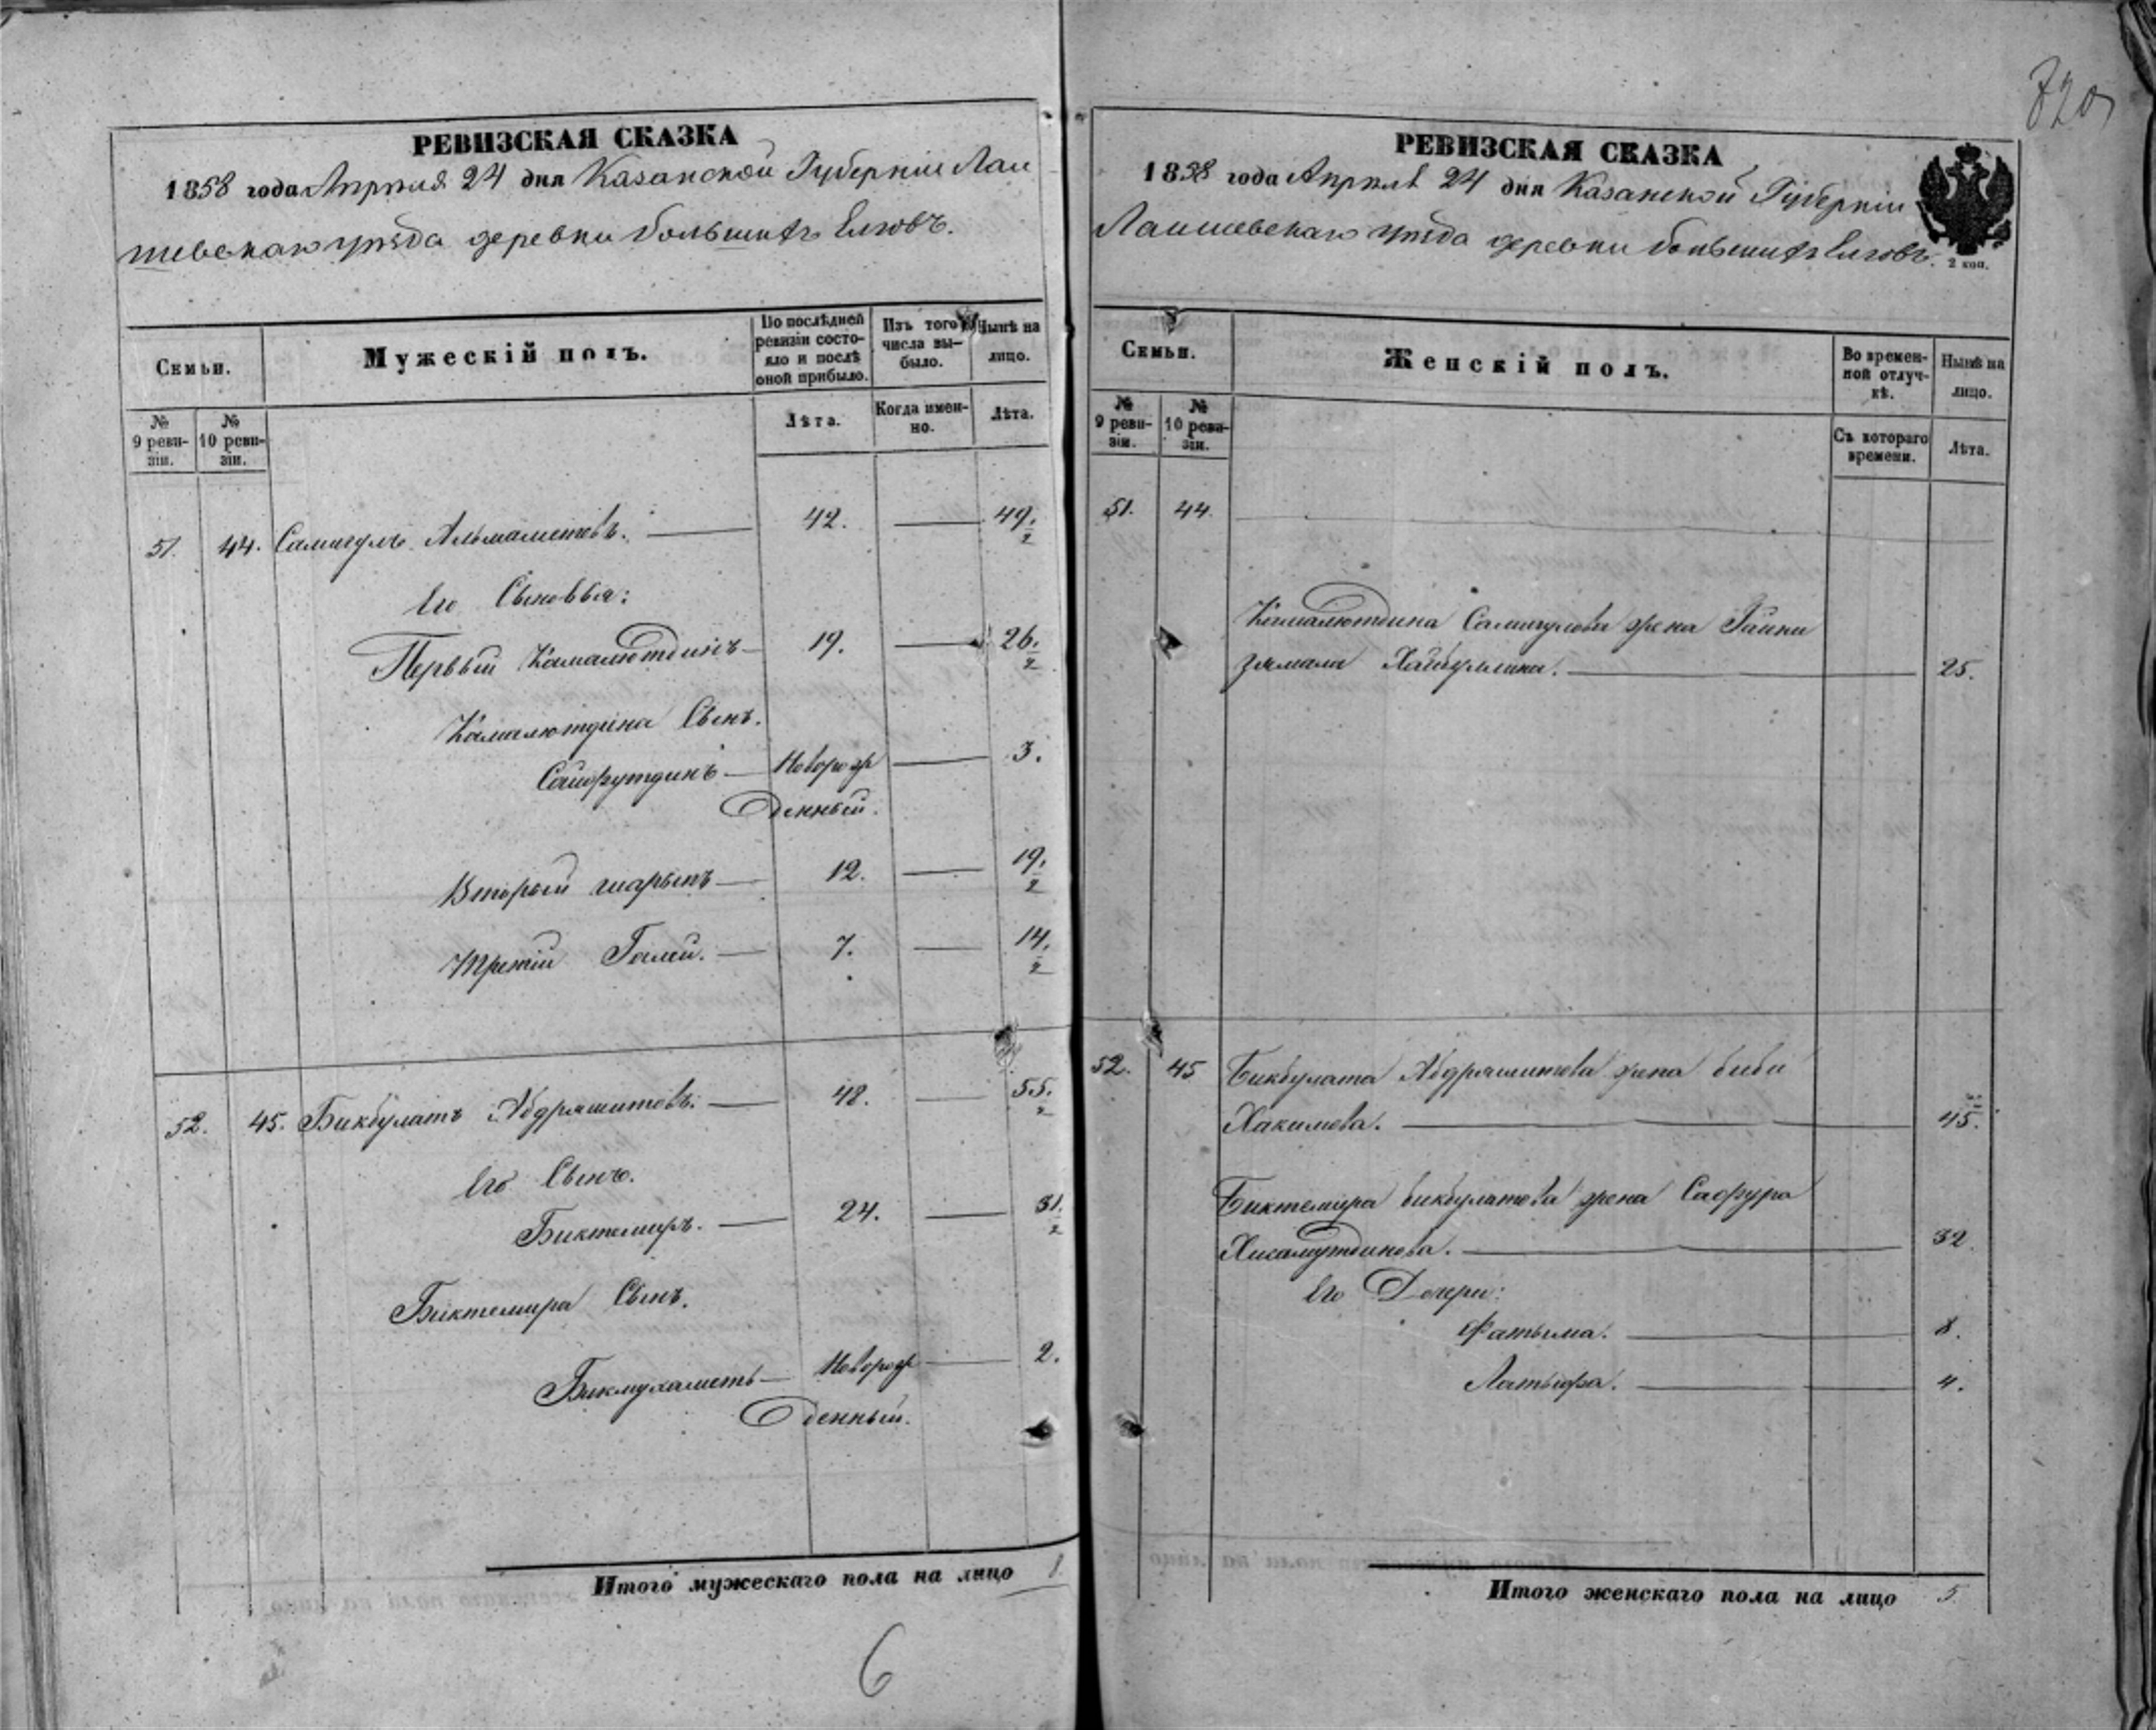 820
РЕВИЗСКАЯ СКАЗКА
1858 года Апреля 24 дня Казанской Губерніи Лаи
шевскаго уѣзда деревни большихъ Елговъ.
Семьи.
Мужескій полъ.
По послѣдней ревизіи состояло и послѣ оной прибыло.
Изъ того числа выбыло.
Нынѣ на лицо.
№ 9 ревизіи.
№ 10 ревизіи.
Лѣта.
Когда именно.
Лѣта.
51. 44. Самигулъ Альмаметовъ. 42. 49.
Его Сыновья:
Первый Камалютдинъ 19. 26.
Камалютдина Сынъ.
Сайфутдинъ Новорож 3.
денный.
Вторый шарыпъ 12. 19.
Третій Галей. 7. 14.
52. 45. Бикбулатъ Абдряшитовъ. 48. 55.
Его Сынъ.
Биктемиръ. 24. 31.
Биктемира Сынъ.
Бикмухаметь Новорож 2.
денный.
Итого мужескаго пола на лицо
6
РЕВИЗСКАЯ СКАЗКА
1858 года Апреля 24 дня Казанской Губерніи
Лаишевскаго уѣзда деревни большихъ Елговъ.
2 коп.
Семьи.
Женскій полъ.
Во временной отлучкѣ.
Нынѣ на лицо.
№ 9 ревизіи.
№ 10 ревизіи.
Съ котораго времени.
Лѣта.
51. 44.
Камалютдина Самигулова жена Гайни
зямала Хайбуллина. 25.
52. 45 Бикбулата Абдряшитова жена биби
Хакимова. 45.
Биктемира бикбулатова жена Сафура
Хисамутдинова. 32
Его Дочери:
Фатыма. 8.
Латыфа. 4.
Итого женскаго пола на лицо 5